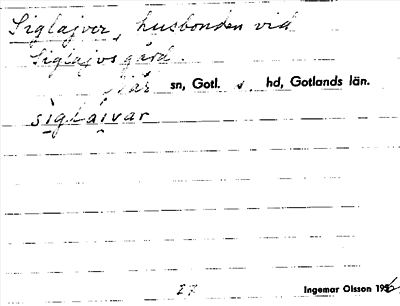 Siglajver, husbonden vid
Siglajvs gård.
När sn, Gotl. s hd, Gotlands län.
siglaivar
27 Ingemar Olsson 1956